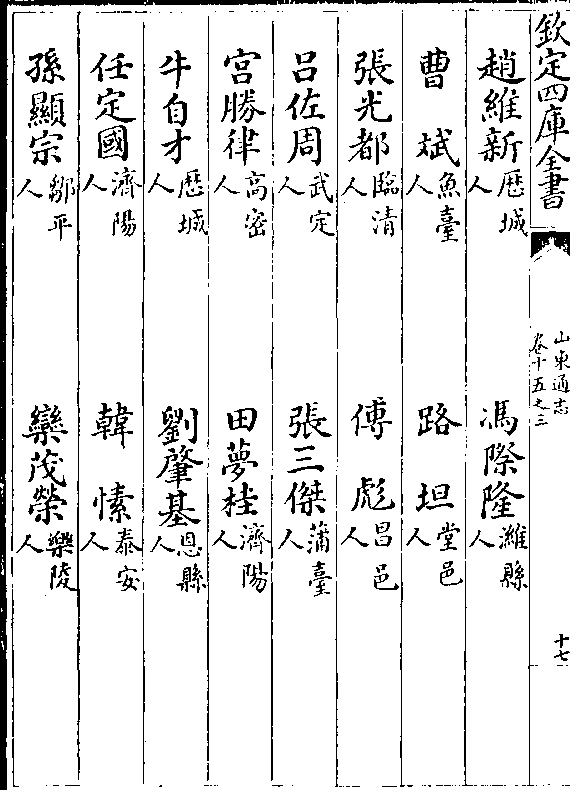 欽定四庫全書
山東通志
卷十五之三
十七
趙維新歷城人 馮際隆濰縣人
曹斌魚臺人 路坦堂邑人
張光都臨清人 傅彪昌邑人
呂佐周武定人 張三傑蒲臺人
宮勝律高密人 田夢桂濟陽人
牛自才歷城人 劉肇基恩縣人
任定國濟陽人 韓愫泰安人
孫顯宗鄒平人 欒茂榮樂陵人